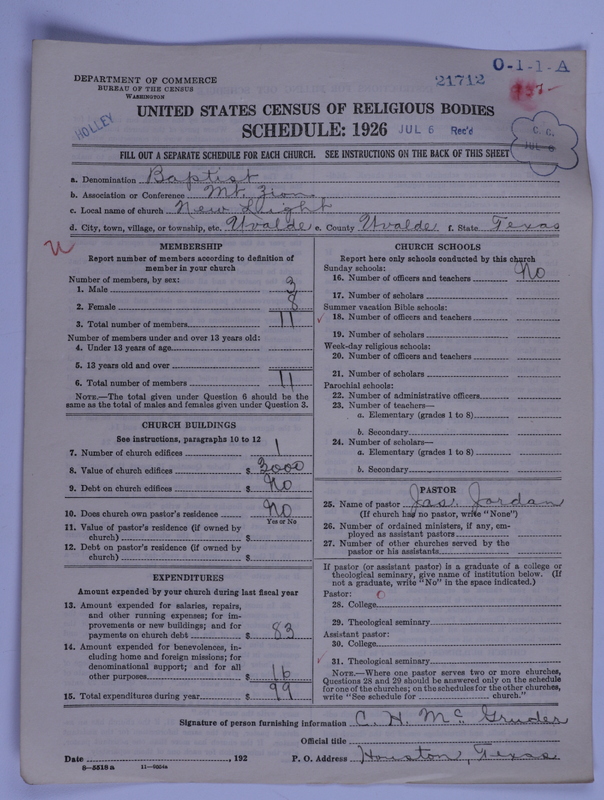 O-1-1-A
DEPARTMENT OF COMMERCE
BUREAU OF THE CENSUS
WASHINGTON
21712
937-
UNITED STATES CENSUS OF RELIGIOUS BODIES
HOLLEY
SCHEDULE: 1926 JUL 6 Rec'd
C. C.
JUL 8
FILL OUT A SEPARATE SCHEDULE FOR EACH CHURCH. SEE INSTRUCTIONS ON THE BACK OF THIS SHEET
a. Denomination Baptist
b. Association or Conference Mt. Zion
c. Local name of church New Light
d. City, town, village, or township, etc. Uvalde e. County Uvalde f. State Texas
MEMBERSHIP
Report number of members according to definition of
member in your church
Number of members, by sex:
1. Male 3
2. Female 8
3. Total number of members 11
Number of members under and over 13 years old:
4. Under 13 years of age
5. 13 years old and over
6. Total number of members 11
NOTE.—The total given under Question 6 should be the
same as the total of males and females given under Question 3.
CHURCH BUILDINGS
See instructions, paragraphs 10 to 12
7. Number of church edifices 1
8. Value of church edifices $ 3000
9. Debt on church edifices $ No
10. Does church own pastor's residence? No
Yes or No
11. Value of pastor's residence (if owned by
church) $
12. Debt on pastor's residence (if owned by
church) $
EXPENDITURES
Amount expended by your church during last fiscal year
13. Amount expended for salaries, repairs,
and other running expenses; for im-
provements or new buildings; and for
payments on church debt $ 83
14. Amount expended for benevolences, in-
cluding home and foreign missions; for
denominational support; and for all
other purposes $ 16
15. Total expenditures during year $ 99
CHURCH SCHOOLS
Report here only schools conducted by this church
Sunday schools:
16. Number of officers and teachers No
17. Number of scholars
Summer vacation Bible schools:
18. Number of officers and teachers
19. Number of scholars
Week-day religious schools:
20. Number of officers and teachers
21. Number of scholars
Parochial schools:
22. Number of administrative officers
23. Number of teachers—
a. Elementary (grades 1 to 8)
b. Secondary
24. Number of scholars—
a. Elementary (grades 1 to 8)
b. Secondary
PASTOR
25. Name of pastor Jas. Jordan
(If church has no pastor, write "None")
26. Number of ordained ministers, if any, em-
ployed as assistant pastors
27. Number of other churches served by the
pastor or his assistants
If pastor (or assistant pastor) is a graduate of a college or
theological seminary, give name of institution below. (If
not a graduate, write "No" in the space indicated.)
Pastor:
28. College
29. Theological seminary
Assistant pastor:
30. College
31. Theological seminary
NOTE.—Where one pastor serves two or more churches,
Questions 28 and 29 should be answered only on the schedule
for one of the churches; on the schedules for the other churches,
write "See schedule for church."
Signature of person furnishing information C. H. McGruder
Official title
Date , 192 P. O. Address Houston, Texas
8—5518a 11—9554a